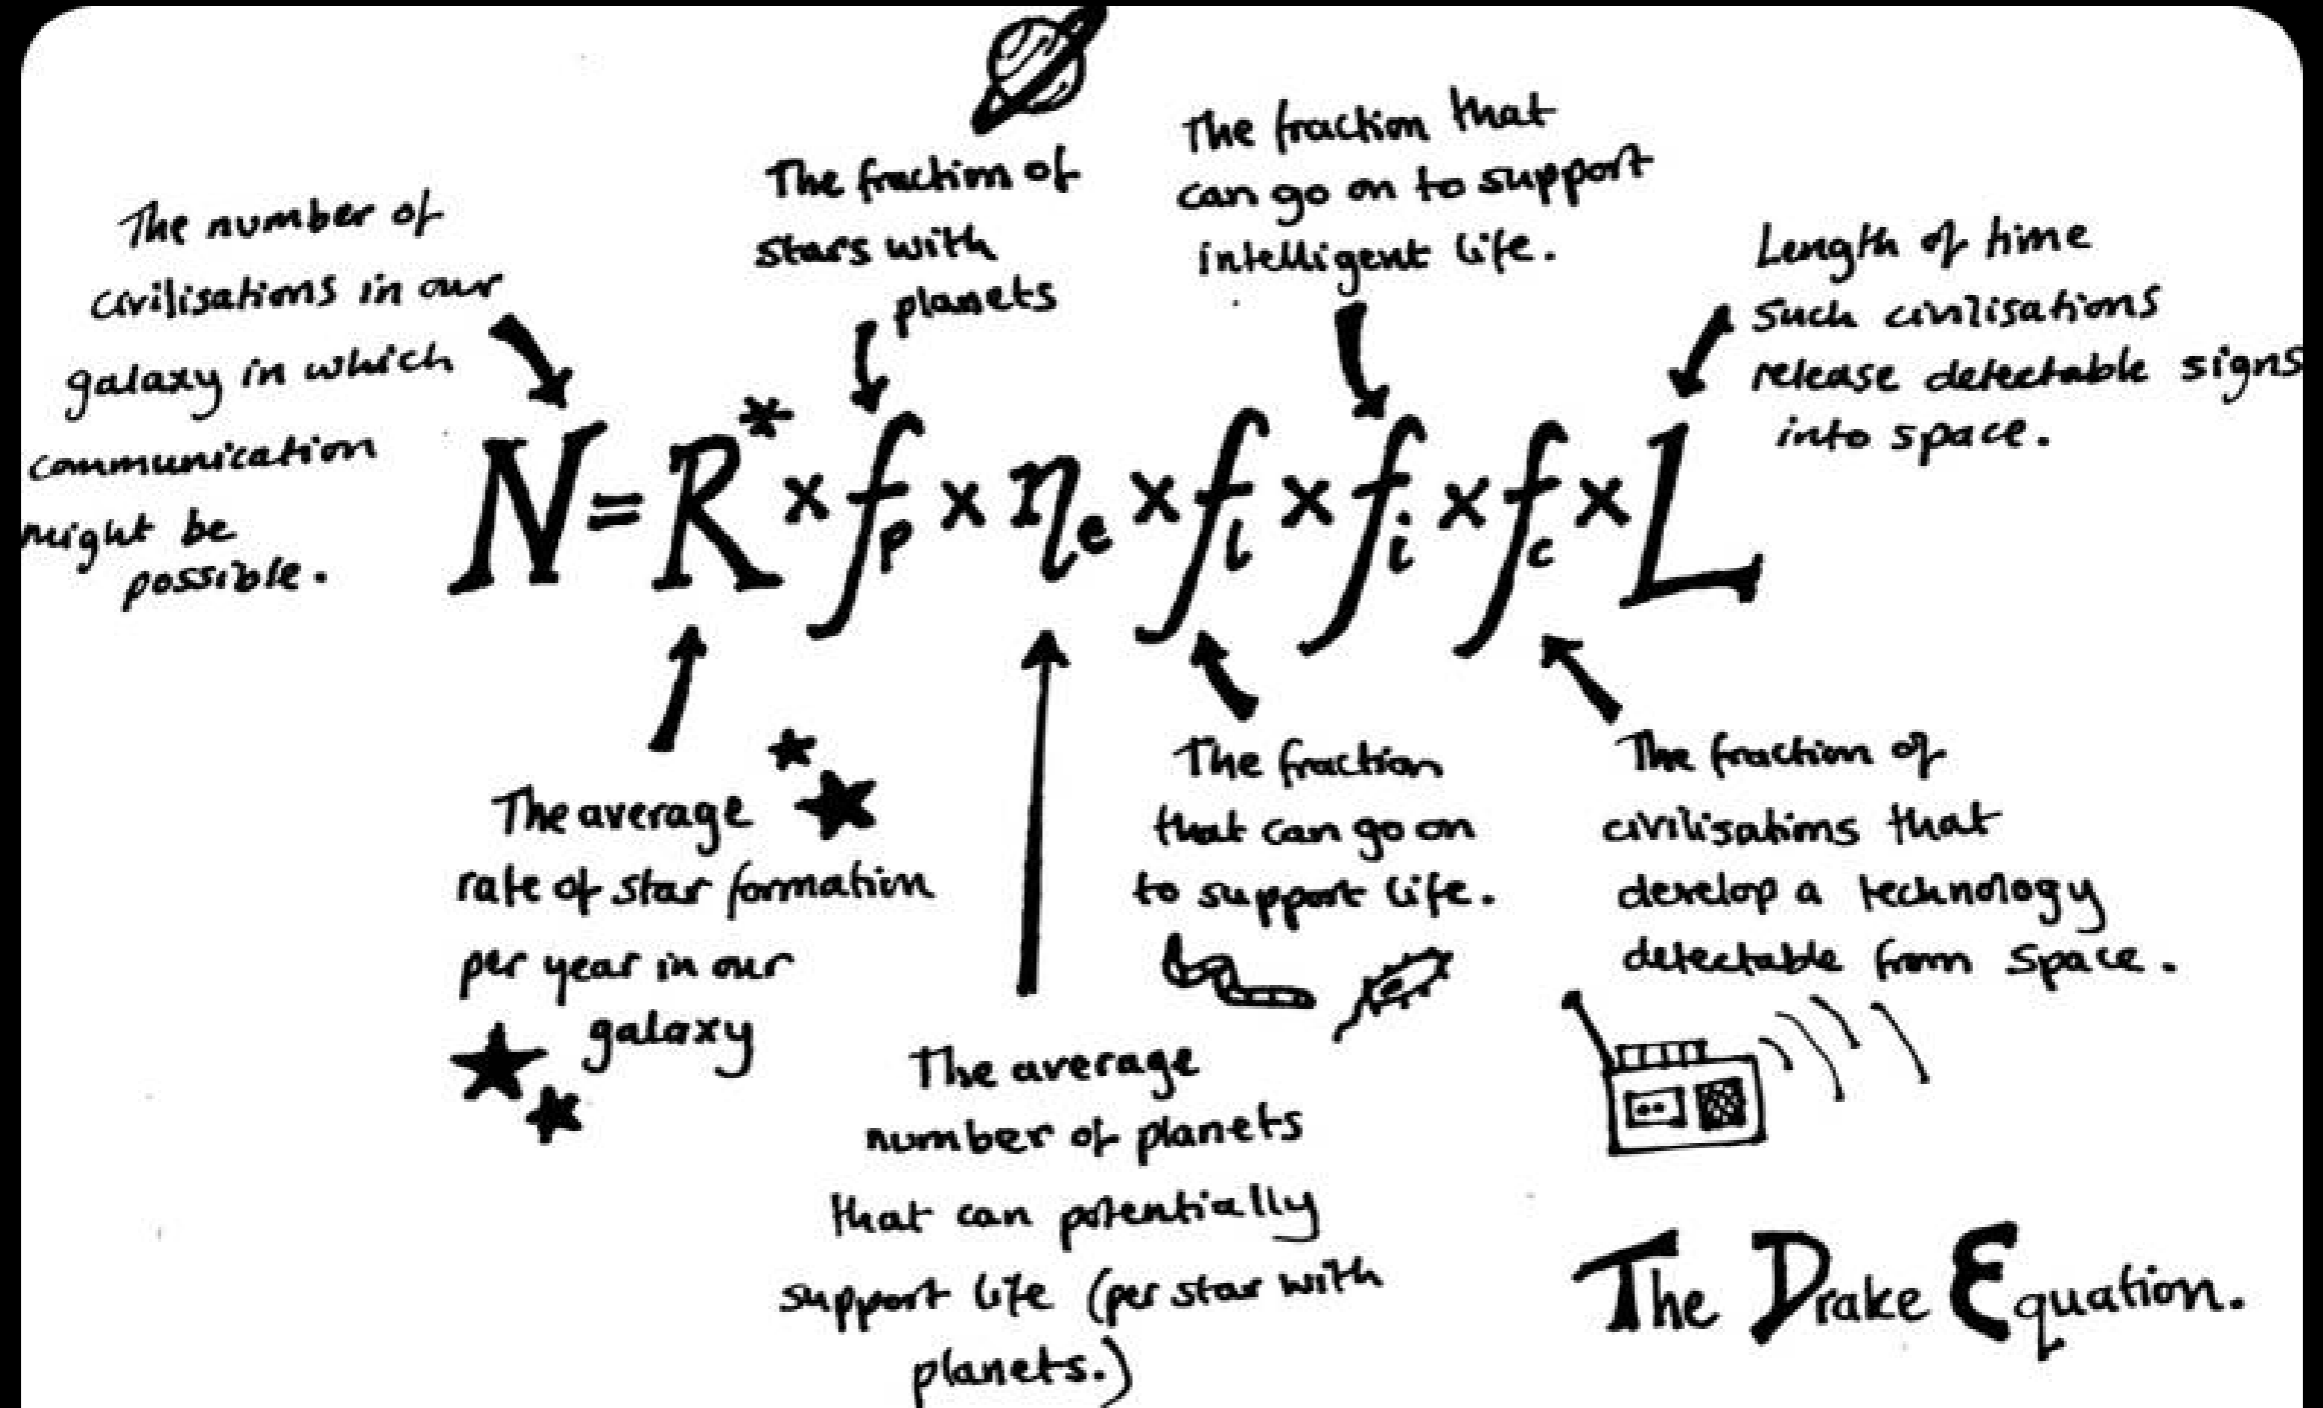 The number of
civilisations in our
galaxy in which
communication
might be
possible.
The fraction of
stars with
planets
The fraction that
can go on to support
intelligent life.
Length of time
such civilisations
release detectable signs
into space.
N = R* × fp × ηe × fl × fi × fc × L
The average
rate of star formation
per year in our
galaxy
The average
number of planets
that can potentially
support life (per star with
planets.)
The fraction
that can go on
to support life.
The fraction of
civilisations that
develop a technology
detectable from space.
The Drake Equation.